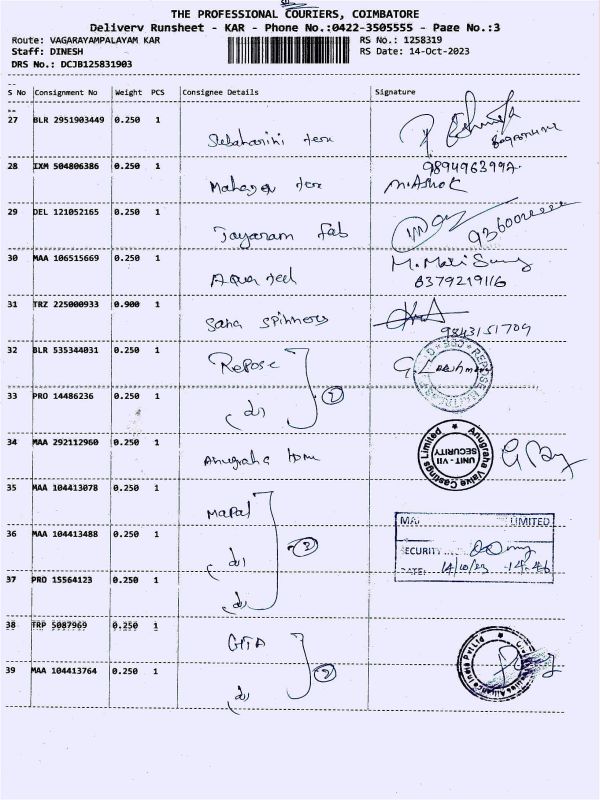 THE PROFESSIONAL COURIERS, COIMBATORE
Delivery Runsheet - KAR - Phone No.:0422-3505555 - Page No.:3
Route: VAGARAYAMPALAYAM KAR RS No.: 1258319
Staff: DINESH RS Date: 14-Oct-2023
DRS No.: DCJB125831903
S No Consignment No Weight PCS Consignee Details Signature
27 BLR 2951903449 0.250 1
28 IXM 504806386 0.250 1 9894963997.
M.Ashok
29 DEL 121052165 0.250 1 Jayaram fab
30 MAA 106515669 0.250 1 Aqua tech M. Mari
8379219116
31 TRZ 225000933 0.900 1 Sara spinners 9843151709
32 BLR 535344031 0.250 1 Repose G. Lakshmi
REPOSE
33 PRO 14486236 0.250 1 (do) 2
34 MAA 292112960 0.250 1 Anugraha
Anugraha Valve Castings Limited
UNIT - VII
SECURITY
35 MAA 104413078 0.250 1 Mapal
36 MAA 104413488 0.250 1 (do) 3
MA LIMITED
SECURITY
DATE: 14/10/23 14.46
37 PRO 15564123 0.250 1 do
38 TRP 5087969 0.250 1 GTA
39 MAA 104413764 0.250 1 (do) 2
Alliance India Pvt Ltd